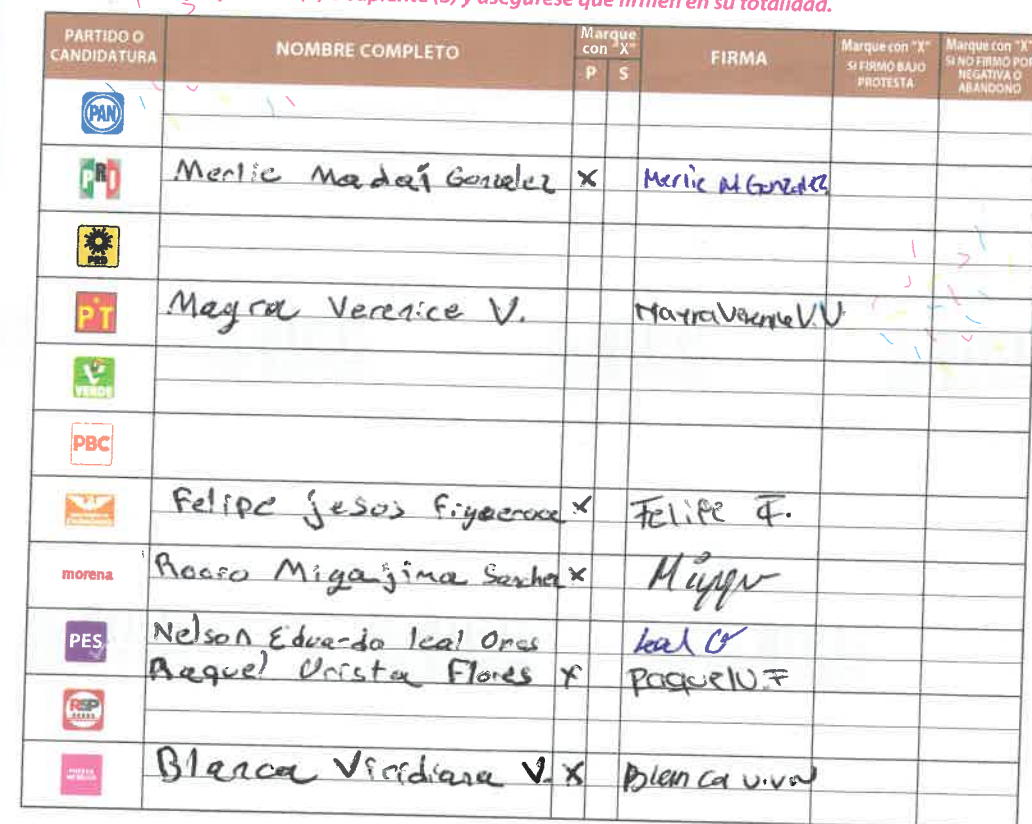 y asegúrese que firmen en su totalidad.
PARTIDO O CANDIDATURA NOMBRE COMPLETO Marque con "X" P S FIRMA Marque con "X" SI FIRMÓ BAJO PROTESTA Marque con "X" SI NO FIRMÓ POR NEGATIVA O ABANDONO
PAN
PRD Merlic Madaí Gonzalez X Merlic M Gonzalez
PRD
PT Mayra Verenice V. Mayra Verenice V.V
VERDE
PBC
Felipe jesus Figueroa X Felipe F.
morena Rocio Migajima Sanchez X
PES Nelson Eduardo leal Oros leal O
Raquel Urista Flores X Raquel U.F
RSP
Blanca Viridiana V. X Blanca V.V